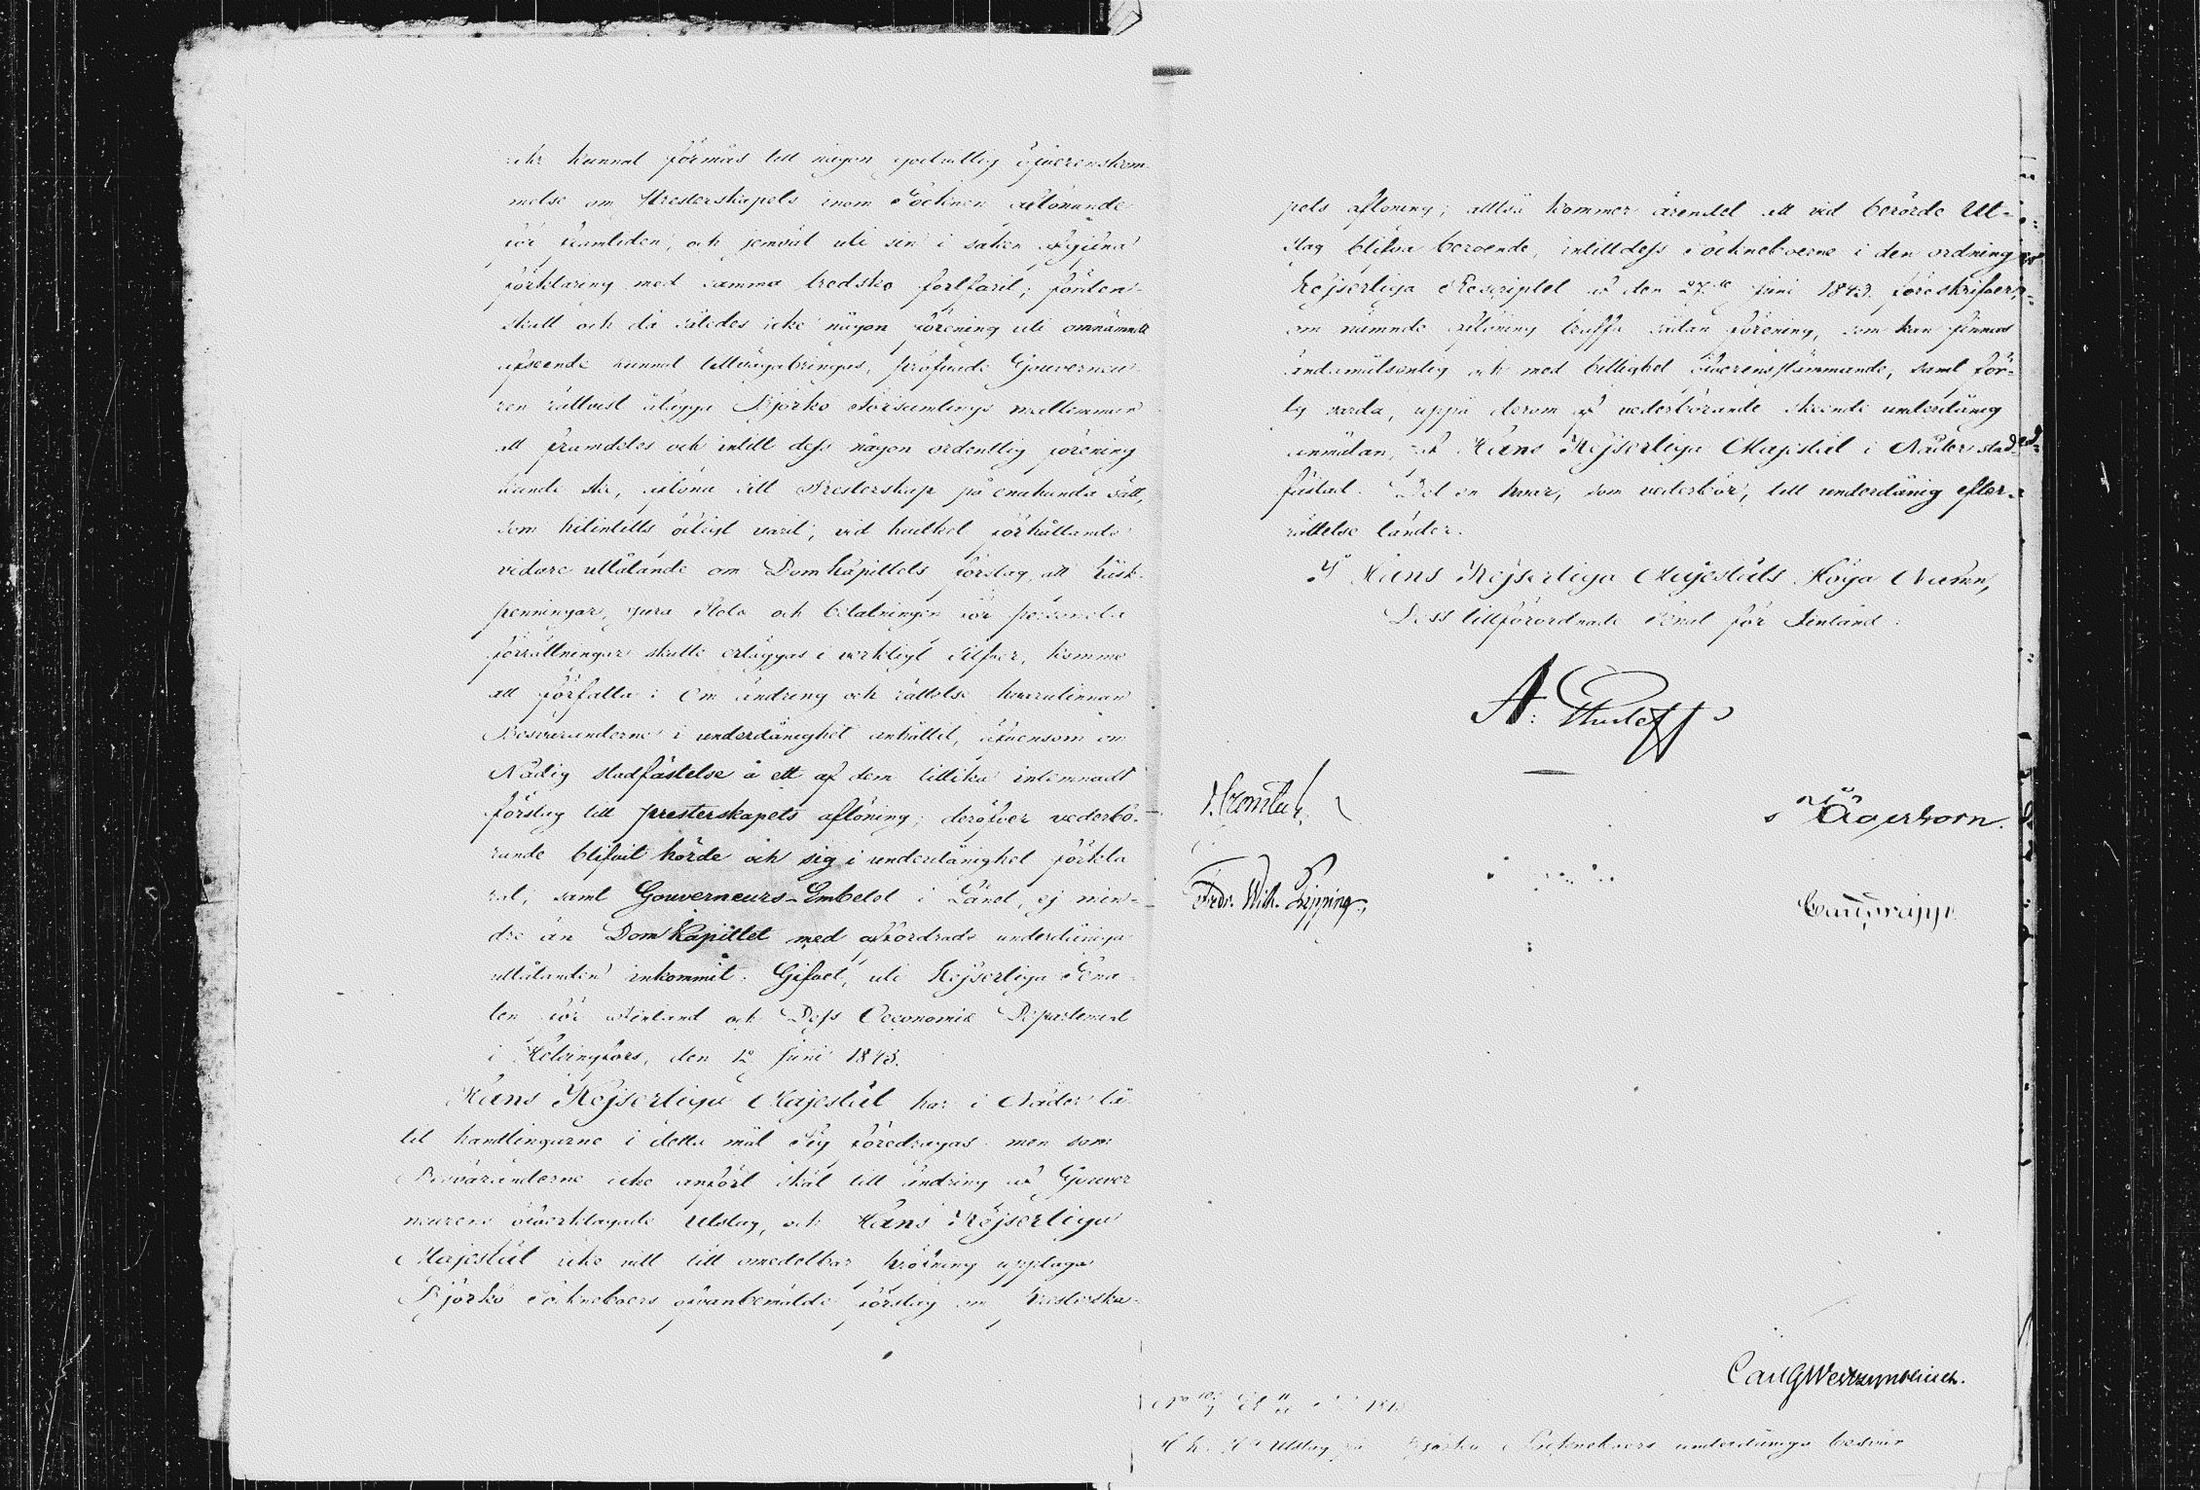 icke kunnat förmås till någon godvillig öfverenskom-
melse om Presterskapets inom Socknen aflönande
för framtiden, och jemväl uti sin i saken afgifna
förklaring med samma tredsko fortfarit; fönden-
skull och då således icke någon förening uti omnämnde
afseende kunnat tillvägabringas, pröfvade Gouverneu-
ren rättvist ålägga Björkö Församlings medlemmar
att framdeles och intill dess någon ordentlig förening
kunde ske, aflöna sitt Presterskap på enahanda sätt,
som hitintills öfligt varit, vid hvilket förhållande
vidare utlåtande om DomKapitlets förslag, att
penningar, jura Stolæ och betalningen för personela
förrättningar skulle erläggas i verkligt Silfver, komme
att förfalla: Om ändring och rättelse hvarutinnan
Besväranderne i underdånighet anhållit, äfvensom om
Nådig stadfästelse å ett af dem tillika inlemnadt
förslag till presterskapets aflöning; deröfver vederbö-
rande blifvit hörde och sig i underdånighet förkla
rat, samt Gouverneurs-Embetet i Länet, ej min-
dre än DomKapitlet med affordrade underdåniga
utlåtanden inkommit. Gifvet, uti Kejserliga Sena-
ten för Finland och Dess Oeconomie Departement
i Helsingfors, den 12 Juni 1843.
Hans Kejserliga Majestät har i Nåder lå-
tit handlingarne i detta mål Sig föredragas; men som
Besväranderne icke anfört skäl till ändring af Gouver
neurens öfverklagade Utslag, och Hans Kejserliga
Majestät icke vill till omedelbar pröfning upptaga
Björkö Sockneboers ofvanbemälde förslag om Presterska-
pets aflöning; alltså kommer ärendet att vid berörde Ut-
slag blifva beroende, intilldess Sockneboerne i den ordning
Kejserliga Rescriptet af den 27de Juni 1843 föreskrifver,
om nämnde aflöning träffa sådan förening, som kan finnas
ändamålsenlig och med billighet öfverensstämmande, samt för-
ty varda, uppå derom af vederbörande skeende underdånig
anmälan, af Hans Kejserliga Majestät i Nåder stad-
fästad. Det en hvar, som vederbör, till underdånig efter-
rättelse länder.
I Hans Kejserliga Majestäts Höga Namn,
Dess tillförordnade Senat för Finland:
A:
Ågerhorn.
Fredr. Wilh. Pipping
Carl G
Utslag på Björkö Sockneboers underdåniga besvär